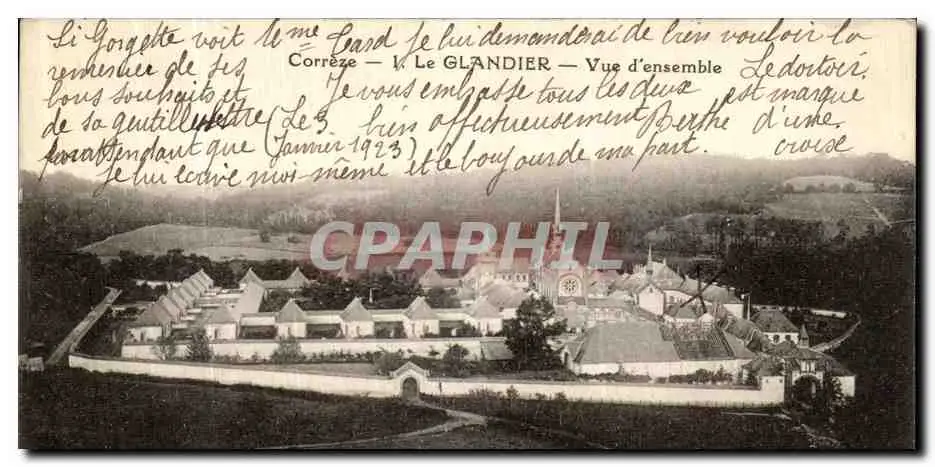 Si Gorgette voit 1eme Gard je lui demanderai de bien vouloir la
remercier de ses
bons souhaits et
de sa gentille lettre
en attendant que
je lui ecrive moi-même
(Le 3
Janvier 1923)
Corrèze — 1. Le GLANDIER — Vue d'ensemble
Je vous embrasse tous les deux
bien affectueusement Berthe
et le boujour de ma part.
Le dortoir
est marque
d'une
croise
CPAPHIL